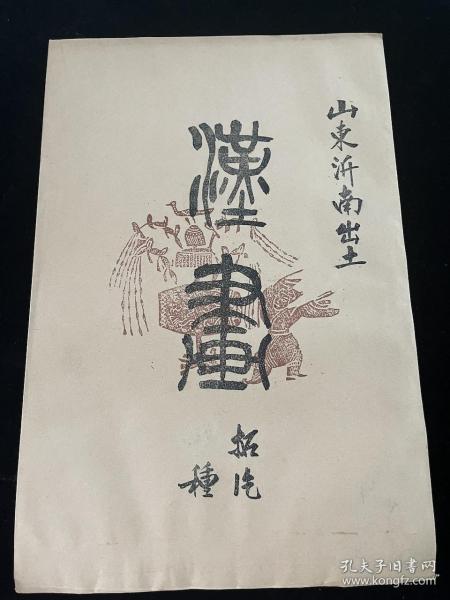 山東沂南出土
漢畫
拓片
種
孔夫子旧书网
www.kongfz.com